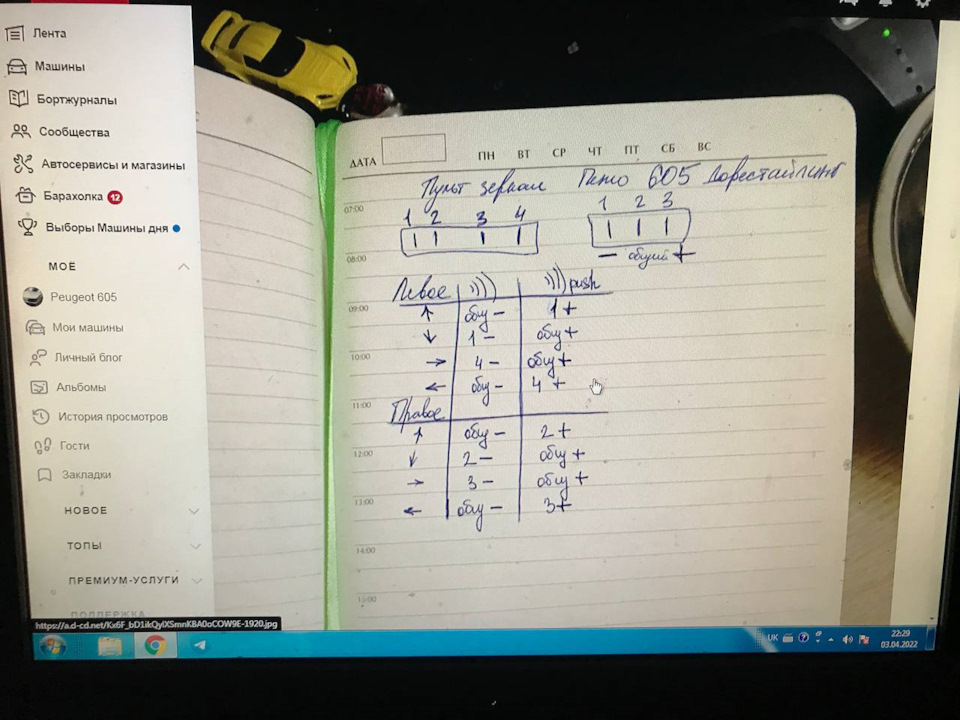 Лента
Машины
Бортжурналы
Сообщества
Автосервисы и магазины
Барахолка 12
Выборы Машины дня
МОЁ
Peugeot 605
Мои машины
Личный блог
Альбомы
История просмотров
Гости
Закладки
НОВОЕ
ТОПЫ
ПРЕМИУМ-УСЛУГИ
ПОДДЕРЖКА
https://a.d-cd.net/Kx6F_bD1ikQylXSmnKBA0oCOW9E-1920.jpg
ДАТА ПН ВТ СР ЧТ ПТ СБ ВС
Пульт зеркал Пежо 605 Дорестайлинг
07:00
1 2 3 4 1 2 3
08:00
− общий +
Левое ))) ))) push
09:00
↑ общ − 1 +
↓ 1 − общ +
10:00
→ 4 − общ +
← общ − 4 +
11:00
Правое
↑ общ − 2 +
12:00
↓ 2 − общ +
→ 3 − общ +
13:00
← общ − 3 +
14:00
15:00
UK
22:29
03.04.2022